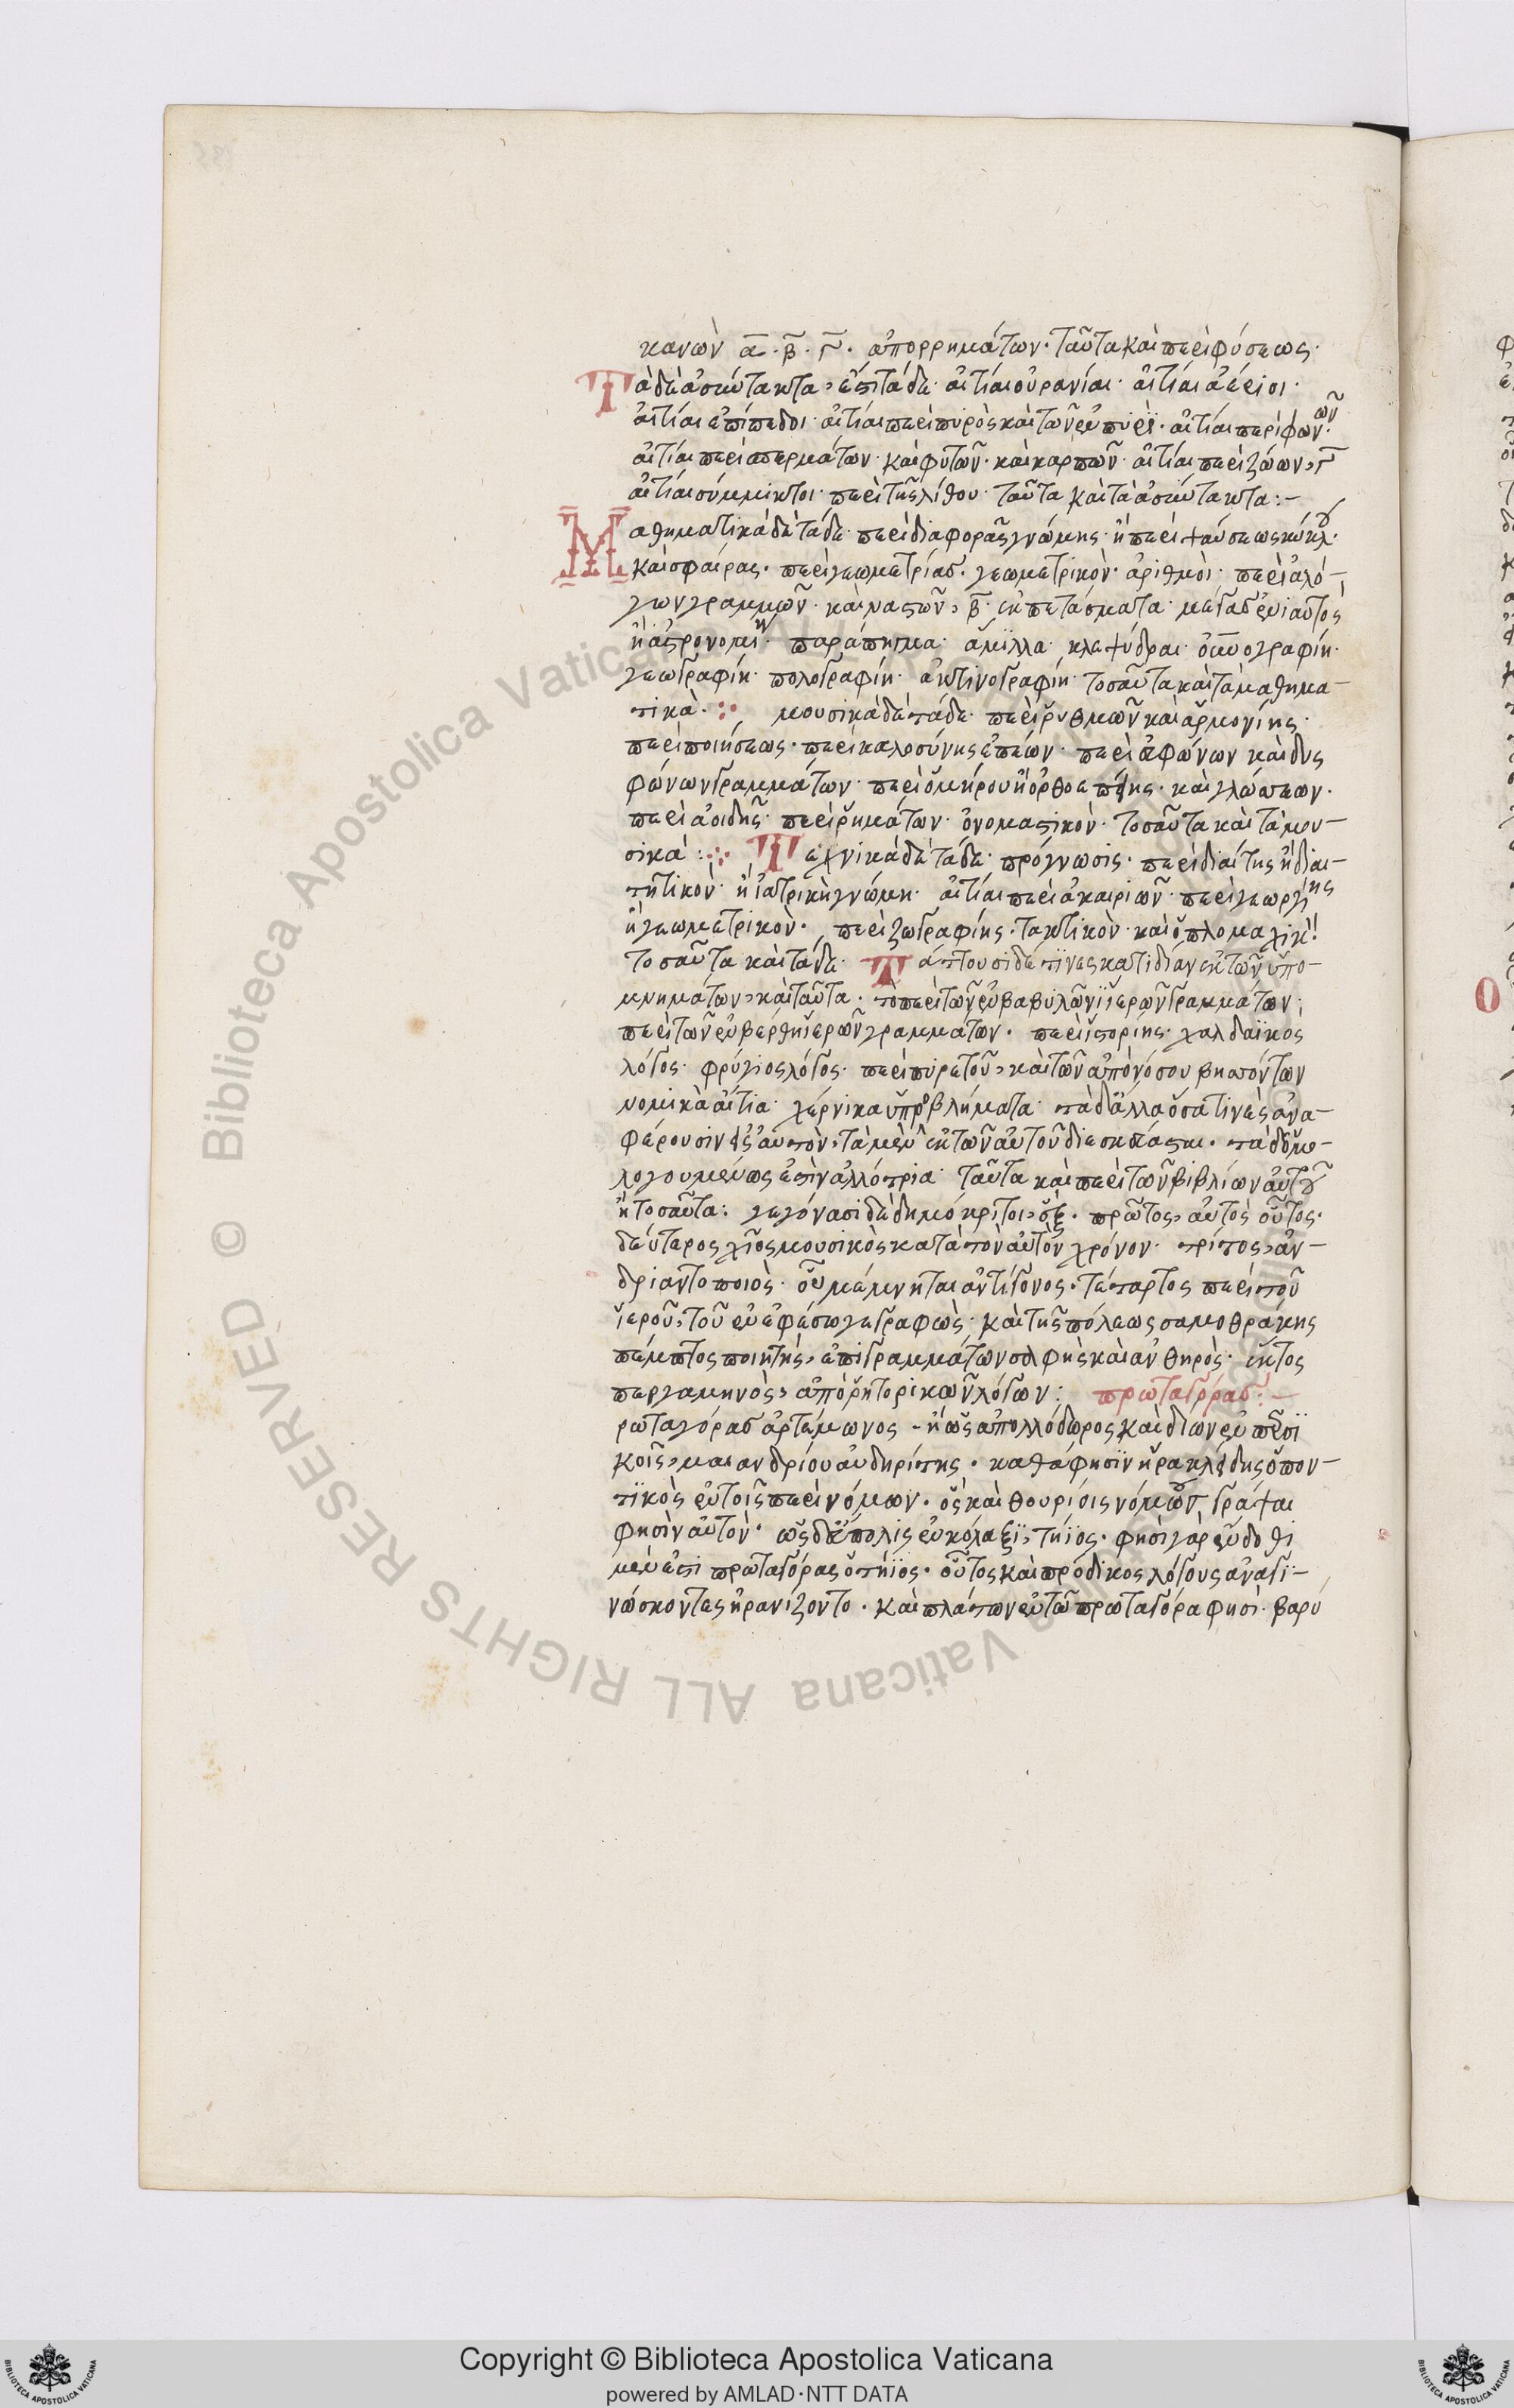 κανὼν α. β. γ. ἀπορρημάτων. ταῦτα καὶ περὶ φύσεως.
Τὰ δὲ ἀσύντακτα, ἐστὶ τάδε. αἰτίαι οὐράνιαι. αἰτίαι ἀέριοι.
αἰτίαι ἐπίπεδοι. αἰτίαι περὶ πυρὸς καὶ τῶν ἐν πυρί. αἰτίαι περὶ φωνῶν.
αἰτίαι περὶ σπερμάτων. καὶ φυτῶν. καὶ καρπῶν. αἰτίαι περὶ ζώων, γ
αἰτίαι σύμμικτοι. περὶ τῆς λίθου. ταῦτα καὶ τὰ ἀσύντακτα:-
Μαθηματικὰ δὲ τάδε. περὶ διαφορᾶς γνώμης. ἢ περὶ ψαύσεως κύκλου
καὶ σφαίρας. περὶ γεωμετρίας. γεωμετρικὸν. ἀριθμοὶ. περὶ ἀλό-
γων γραμμῶν. καὶ ναστῶν, β. ἐκπετάσματα. μέγας ἐνιαυτὸς
ἢ ἀστρονομίη. παράπηγμα. ἅμιλλα κλεψύδραι. οὐρανογραφίη.
γεωγραφίη. πολογραφίη. ἀκτινογραφίη. τοσαῦτα καὶ τὰ μαθημα-
τικὰ. μουσικὰ δὲ τάδε. περὶ ῥυθμῶν καὶ ἁρμονίης.
περὶ ποιήσεως. περὶ καλοσύνης ἐπέων. περὶ ἀφώνων καὶ δυς
φώνων γραμμάτων. περὶ ὁμήρου ἢ ὀρθοεπείης. καὶ γλώσσεων.
περὶ ἀοιδῆς. περὶ ῥημάτων. ὀνομαστικὸν. τοσαῦτα καὶ τὰ μου-
σικά: Τεχνικὰ δὲ τάδε. πρόγνωσις. περὶ διαίτης ἢ διαι-
τητικὸν. ἢ ἰατρικὴ γνώμη. αἰτίαι περὶ ἀκαιριῶν. περὶ γεωργίης
ἢ γεωμετρικὸν. περὶ ζωγραφίης. τακτικὸν καὶ ὁπλομαχικὸν.
τοσαῦτα καὶ τάδε. Τάττουσι δέ τινες κατιδίαν ἐκ τῶν ὑπο-
μνημάτων, καὶ ταῦτα. τὸ περὶ τῶν ἐν βαβυλῶνι ἱερῶν γραμμάτων.
περὶ τῶν ἐν βερθηι ἱερῶν γραμμάτων. περὶ ἱστορίης. χαλδαϊκος
λόγος. φρύγιος λόγος. περὶ πυρετοῦ, καὶ τῶν ἀπὸ νόσου βησσόντων
νομικὰ αἴτια. χέρνικα ὑπροβλήματα. τὰ δ' ἄλλα ὅσα τινὲς ἀνα-
φέρουσιν εἰς αὐτὸν, τὰ μὲν ἐκ τῶν αὐτοῦ διεσκεύασται. τὰ δ' ὁμο-
λογουμένως ἐστὶν ἀλλότρια. ταῦτα καὶ περὶ τῶν βιβλίων αὐτοῦ
ἢ τοσαῦτα: γεγόνασι δὲ δημόκριτοι, ἕξ. πρῶτος, αὐτὸς οὗτος.
δεύτερος χῖος μουσικὸς κατὰ τὸν αὐτὸν χρόνον. τρίτος, ἀν-
δριαντοποιὸς. οὗ μέμνηται ἀντίγονος. τέταρτος περὶ τοῦ
ἱεροῦ, τοῦ ἐν ἐφέσω γεγραφὼς. καὶ τῆς πόλεως σαμοθράκης
πέμπτος ποιητὴς, ἐπιγραμμάτων σαφὴς καὶ ἀνθηρὸς. ἕκτος
περγαμηνὸς, ἀπὸ ῥητορικῶν λόγων: πρωταγόρας:-
ρωταγόρας ἀρτέμωνος - ἢ ὡς ἀπολλόδωρος καὶ δίων ἐν περσϊ
κοῖς, μαιανδρίου ἀβδηρίτης. καθά φησϊν ἡρακλείδης ὁ πον-
τϊκὸς ἐν τοῖς περὶ νόμων. ὃς καὶ θουρίοις νόμους γράψαι
φησὶν αὐτὸν. ὡς δὲ εὔπολις ἐν κόλαξϊ, τήϊος. φησὶ γὰρ ἔνδοθι
μέν ἐστι πρωταγόρας ὁ τήϊος. οὗτος καὶ πρόδικος λόγους ἀναγι-
νώσκοντες ἠρανίζοντο. καὶ πλάτων ἐν τῶ πρωταγόρα φησὶ. βαρύ